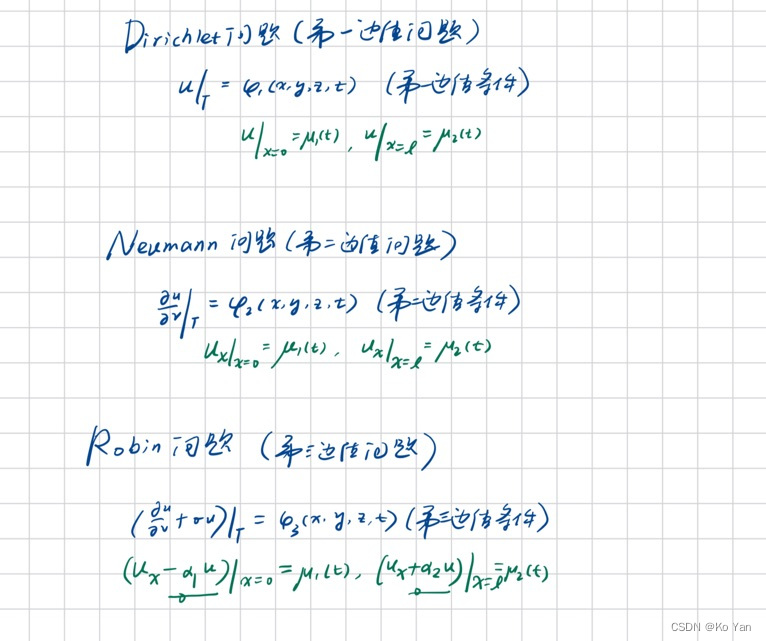 Dirichlet 问题 (第一边值问题)
u|_T = φ₁(x,y,z,t) (第一边值条件)
u|_{x=0} = μ₁(t), u|_{x=l} = μ₂(t)
Neumann 问题 (第二边值问题)
∂u/∂ν|_T = φ₂(x,y,z,t) (第二边值条件)
u_x|_{x=0} = μ₁(t), u_x|_{x=l} = μ₂(t)
Robin 问题 (第三边值问题)
(∂u/∂ν + σu)|_T = φ₃(x,y,z,t) (第三边值条件)
(u_x - α₁u)|_{x=0} = μ₁(t), (u_x + α₂u)|_{x=l} = μ₂(t)
CSDN @Ko Yan